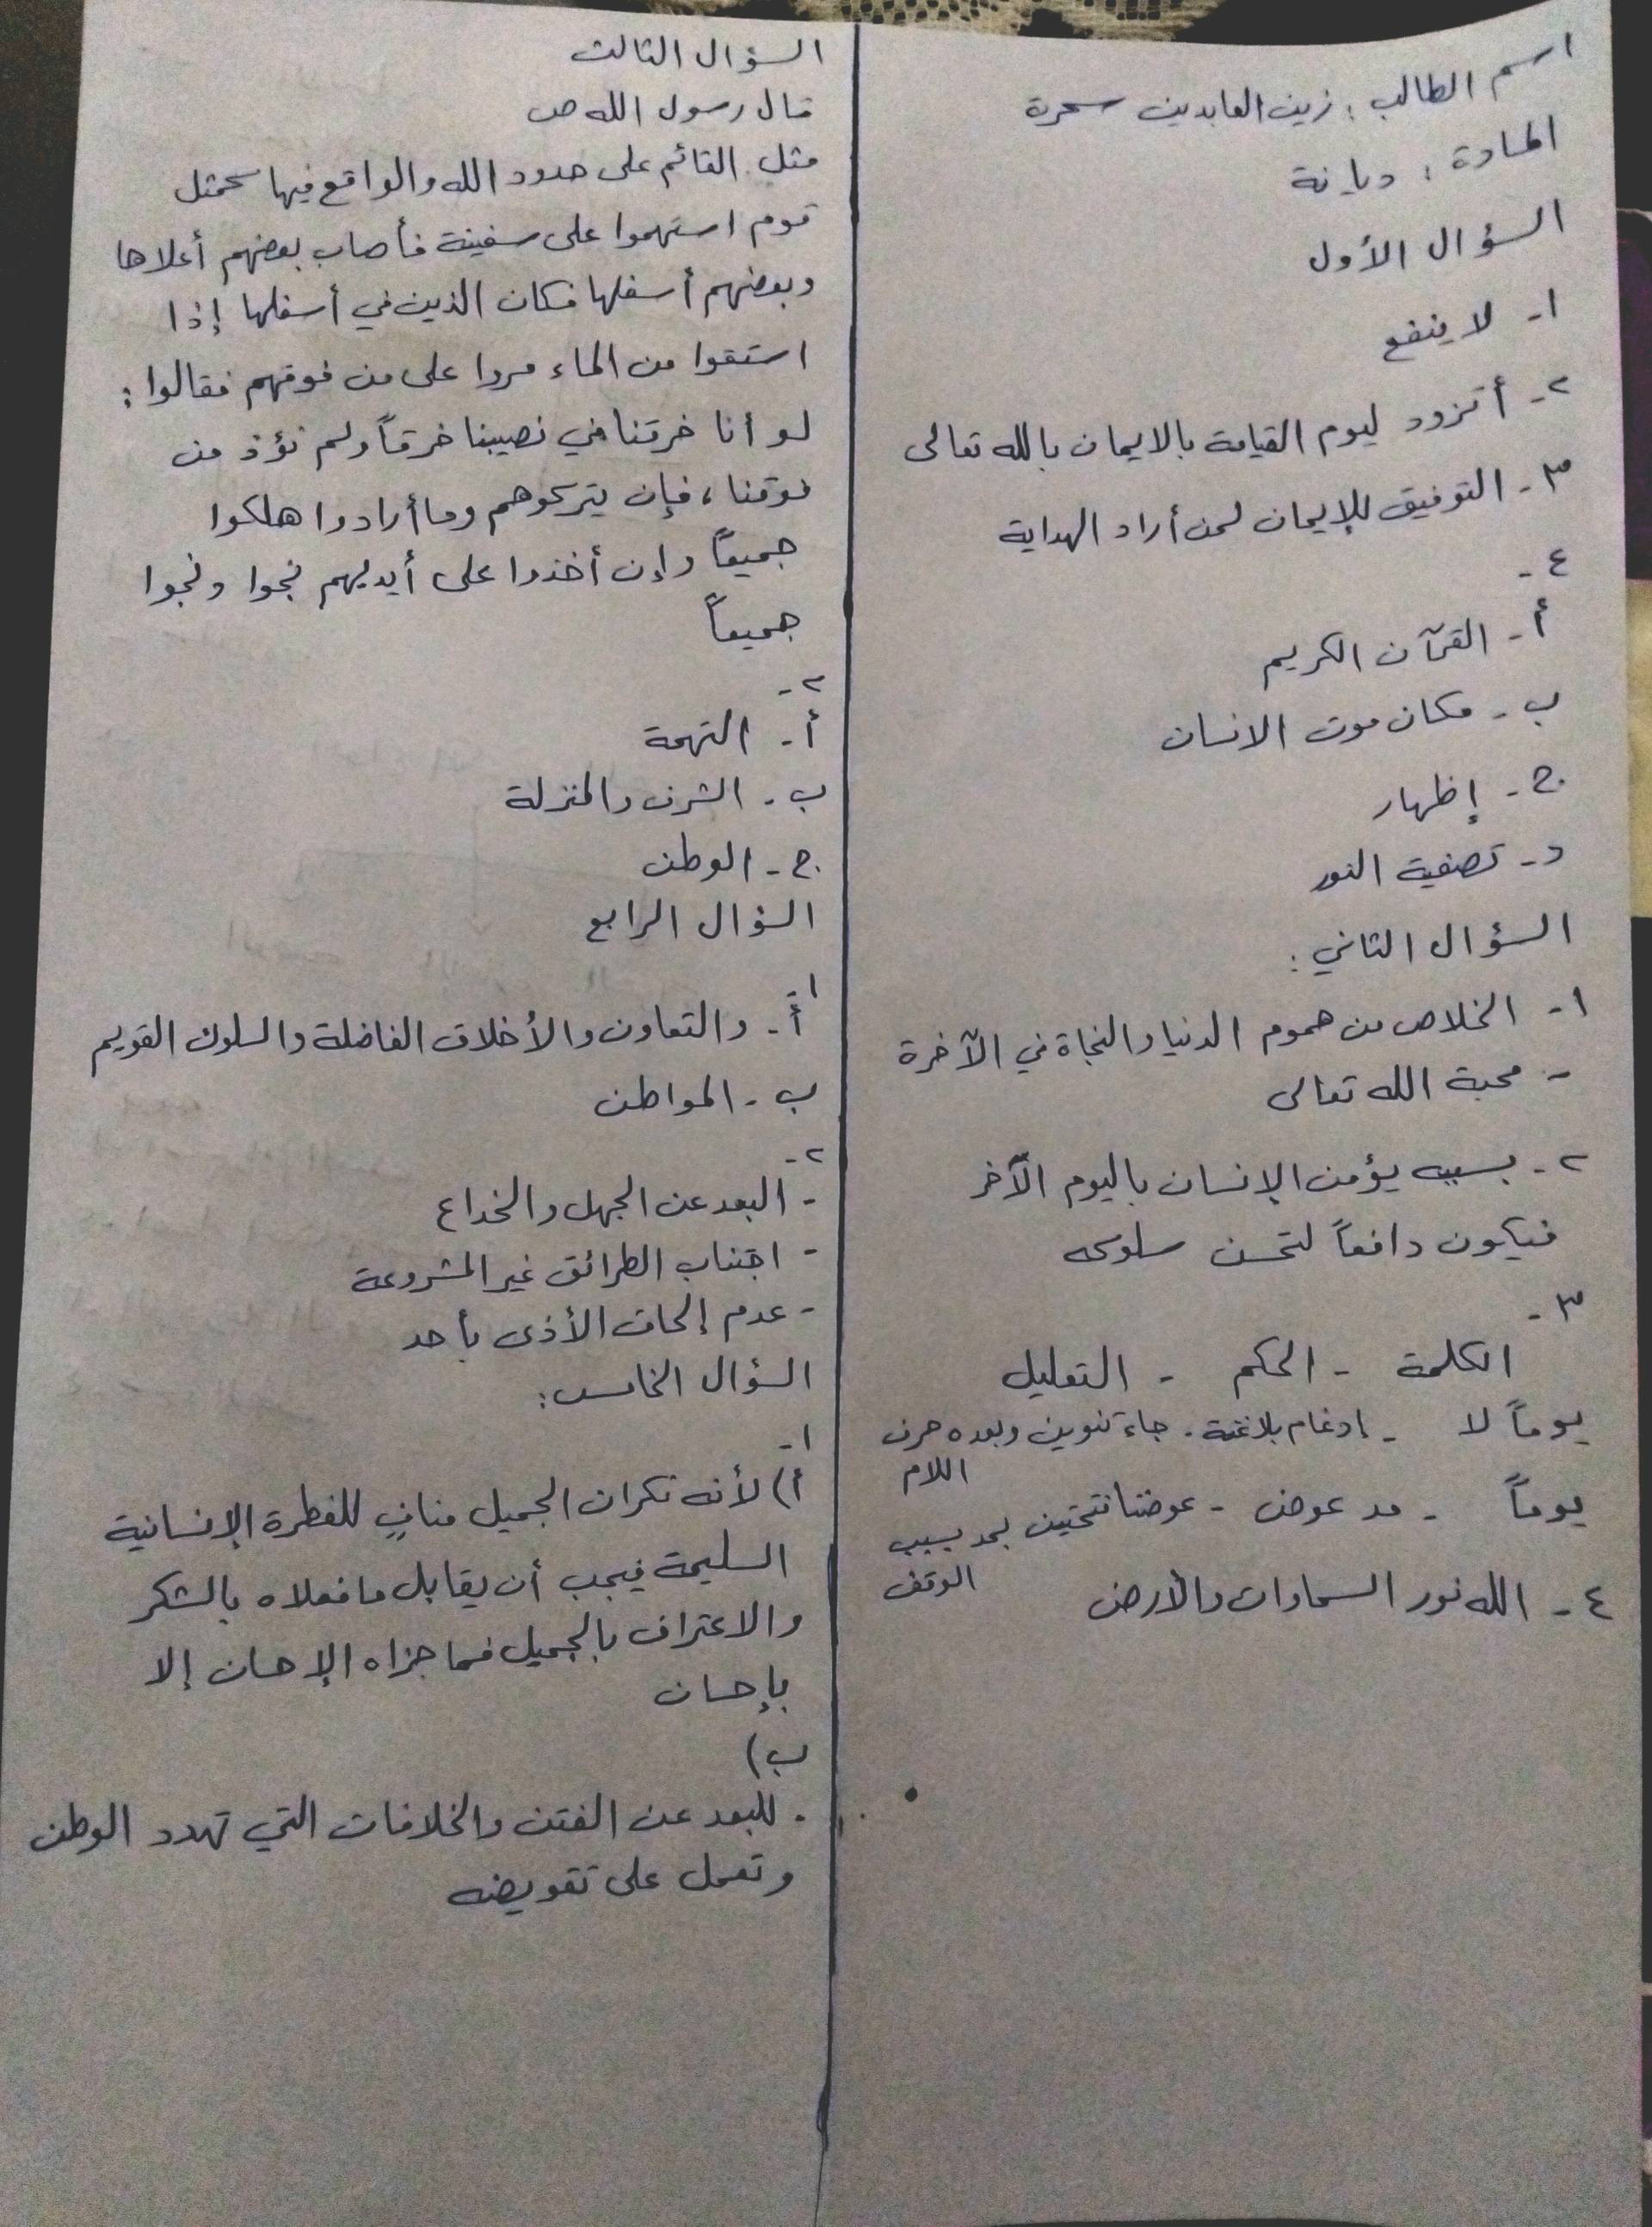 اسم الطالب : زين العابدين سحرة
المادة : ديانة
السؤال الأول
١- لا ينفع
٢- أتزود ليوم القيامة بالايمان بالله تعالى
٣- التوفيق للإيمان لمن أراد الهداية
٤-
أ- القرآن الكريم
ب- مكان موت الانسان
ج- إظهار
د- تصفية النور
السؤال الثاني :
١- الخلاص من هموم الدنيا والنجاة في الآخرة
- محبة الله تعالى
٢- بسببه يؤمن الإنسان باليوم الآخر
فيكون دافعاً لتحسن سلوكه
٣-
الكلمة - الحكم - التعليل
يوماً لا - إدغام بلا غنة . جاء تنوين وبعده حرف
اللام
يوماً - مد عوض - عوضنا فتحتين بمد بسبب
الوقف
٤- الله نور السماوات والأرض
السؤال الثالث
قال رسول الله ص
مثل القائم على حدود الله والواقع فيها كمثل
قوم استهموا على سفينة فأصاب بعضهم أعلاها
وبعضهم أسفلها فكان الذين في أسفلها إذا
استقوا من الماء مروا على من فوقهم فقالوا :
لو أنا خرقنا في نصيبنا خرقاً ولم نؤذ من
فوقنا ، فإن يتركوهم وما أرادوا هلكوا
جميعاً وإن أخذوا على أيديهم نجوا ونجوا
جميعاً
٢-
أ- التهمة
ب- الشرف والمنزلة
ج- الوطن
السؤال الرابع
١-
أ- والتعاون والأخلاق الفاضلة والسلوك القويم
ب- المواطن
٢-
- البعد عن الجهل والخداع
- اجتناب الطرائق غير المشروعة
- عدم إلحاق الأذى بأحد
السؤال الخامس :
١-
أ) لأنه نكران الجميل منافٍ للفطرة الإنسانية
السليمة فيجب أن يقابل ما فعلاه بالشكر
والاعتراف بالجميل فما جزاه الإحسان إلا
بإحسان
ب)
. للبعد عن الفتن والخلافات التي تهدد الوطن
وتعمل على تقويضه